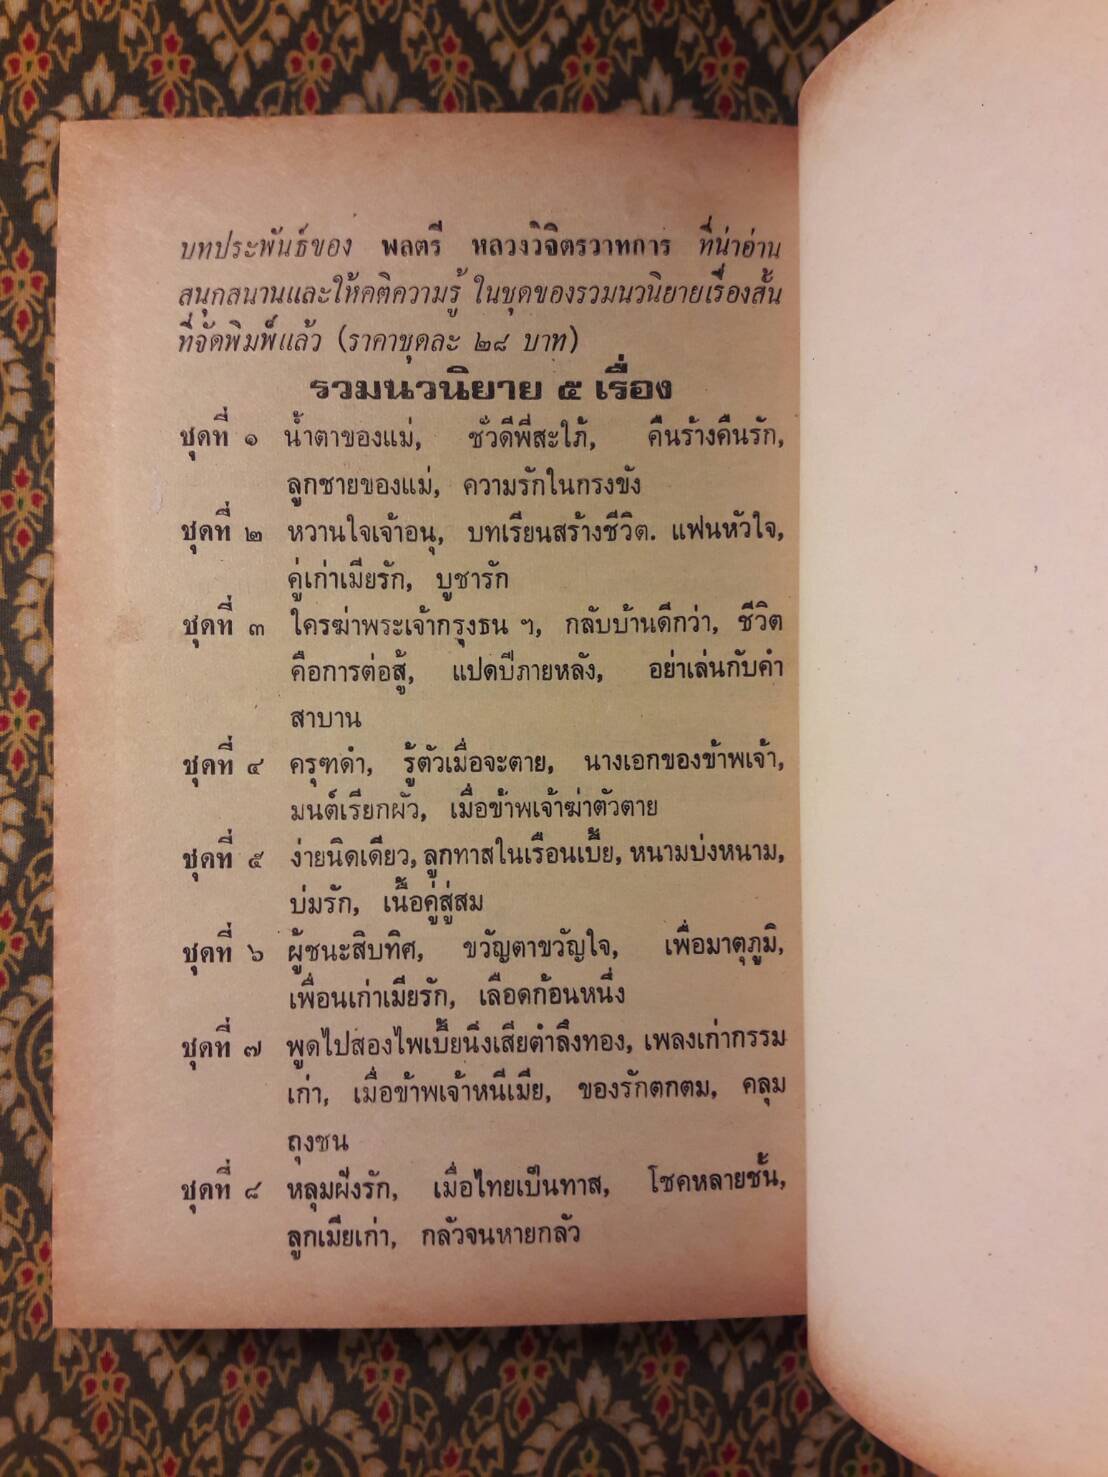 บทประพันธ์ของ พลตรี หลวงวิจิตรวาทการ ที่น่าอ่าน
สนุกสนานและให้คติความรู้ ในชุดของรวมนวนิยายเรื่องสั้น
ที่จัดพิมพ์แล้ว (ราคาชุดละ ๒๘ บาท)
รวมนวนิยาย ๕ เรื่อง
ชุดที่ ๑ น้ำตาของแม่, ชั่วดีพี่สะใภ้, คืนร้างคืนรัก,
ลูกชายของแม่, ความรักในกรงขัง
ชุดที่ ๒ หวานใจเจ้าอนุ, บทเรียนสร้างชีวิต. แฟนหัวใจ,
คู่เก่าเมียรัก, บูชารัก
ชุดที่ ๓ ใครฆ่าพระเจ้ากรุงธน ฯ, กลับบ้านดีกว่า, ชีวิต
คือการต่อสู้, แปดปีภายหลัง, อย่าเล่นกับคำ
สาบาน
ชุดที่ ๔ ครุฑดำ, รู้ตัวเมื่อจะตาย, นางเอกของข้าพเจ้า,
มนต์เรียกผัว, เมื่อข้าพเจ้าฆ่าตัวตาย
ชุดที่ ๕ ง่ายนิดเดียว, ลูกทาสในเรือนเบี้ย, หนามบ่งหนาม,
บ่มรัก, เนื้อคู่สู่สม
ชุดที่ ๖ ผู้ชนะสิบทิศ, ขวัญตาขวัญใจ, เพื่อมาตุภูมิ,
เพื่อนเก่าเมียรัก, เลือดก้อนหนึ่ง
ชุดที่ ๗ พูดไปสองไพเบี้ยนิ่งเสียตำลึงทอง, เพลงเก่ากรรม
เก่า, เมื่อข้าพเจ้าหนีเมีย, ของรักตกตม, คลุม
ถุงชน
ชุดที่ ๘ หลุมฝังรัก, เมื่อไทยเป็นทาส, โชคหลายชั้น,
ลูกเมียเก่า, กลัวจนหายกลัว